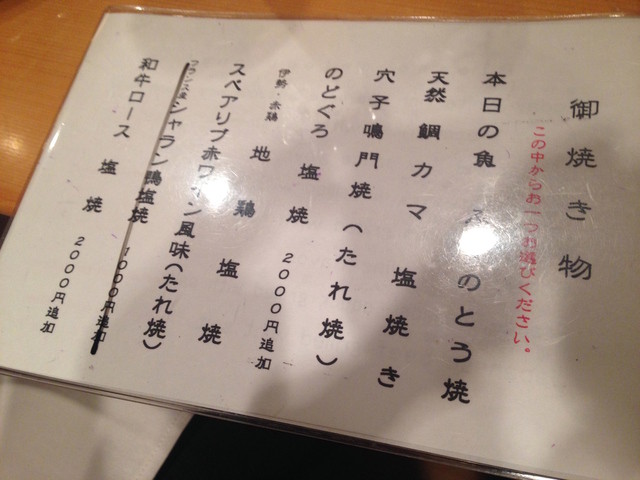 御焼き物
この中からお一つお選びください。
本日の魚 のとう焼
天然鯛カマ塩焼き
穴子鳴門焼(たれ焼)
のどぐろ塩焼 2000円追加
伊勢・赤鶏 地鶏塩焼
スペアリブ赤ワイン風味(たれ焼)
フランス産シャラン鴨塩焼 1000円追加
和牛ロース塩焼 2000円追加